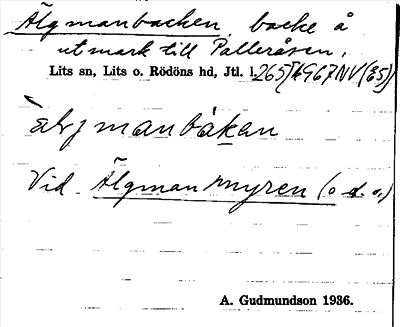 Älgmanbacken, backe å
utmark till Palleråsen,
Lits sn, Lits o. Rödöns hd, Jtl. l.
älgmanbakan
Vid Älgmanmyren (o d. o.)
A. Gudmundson 1936.